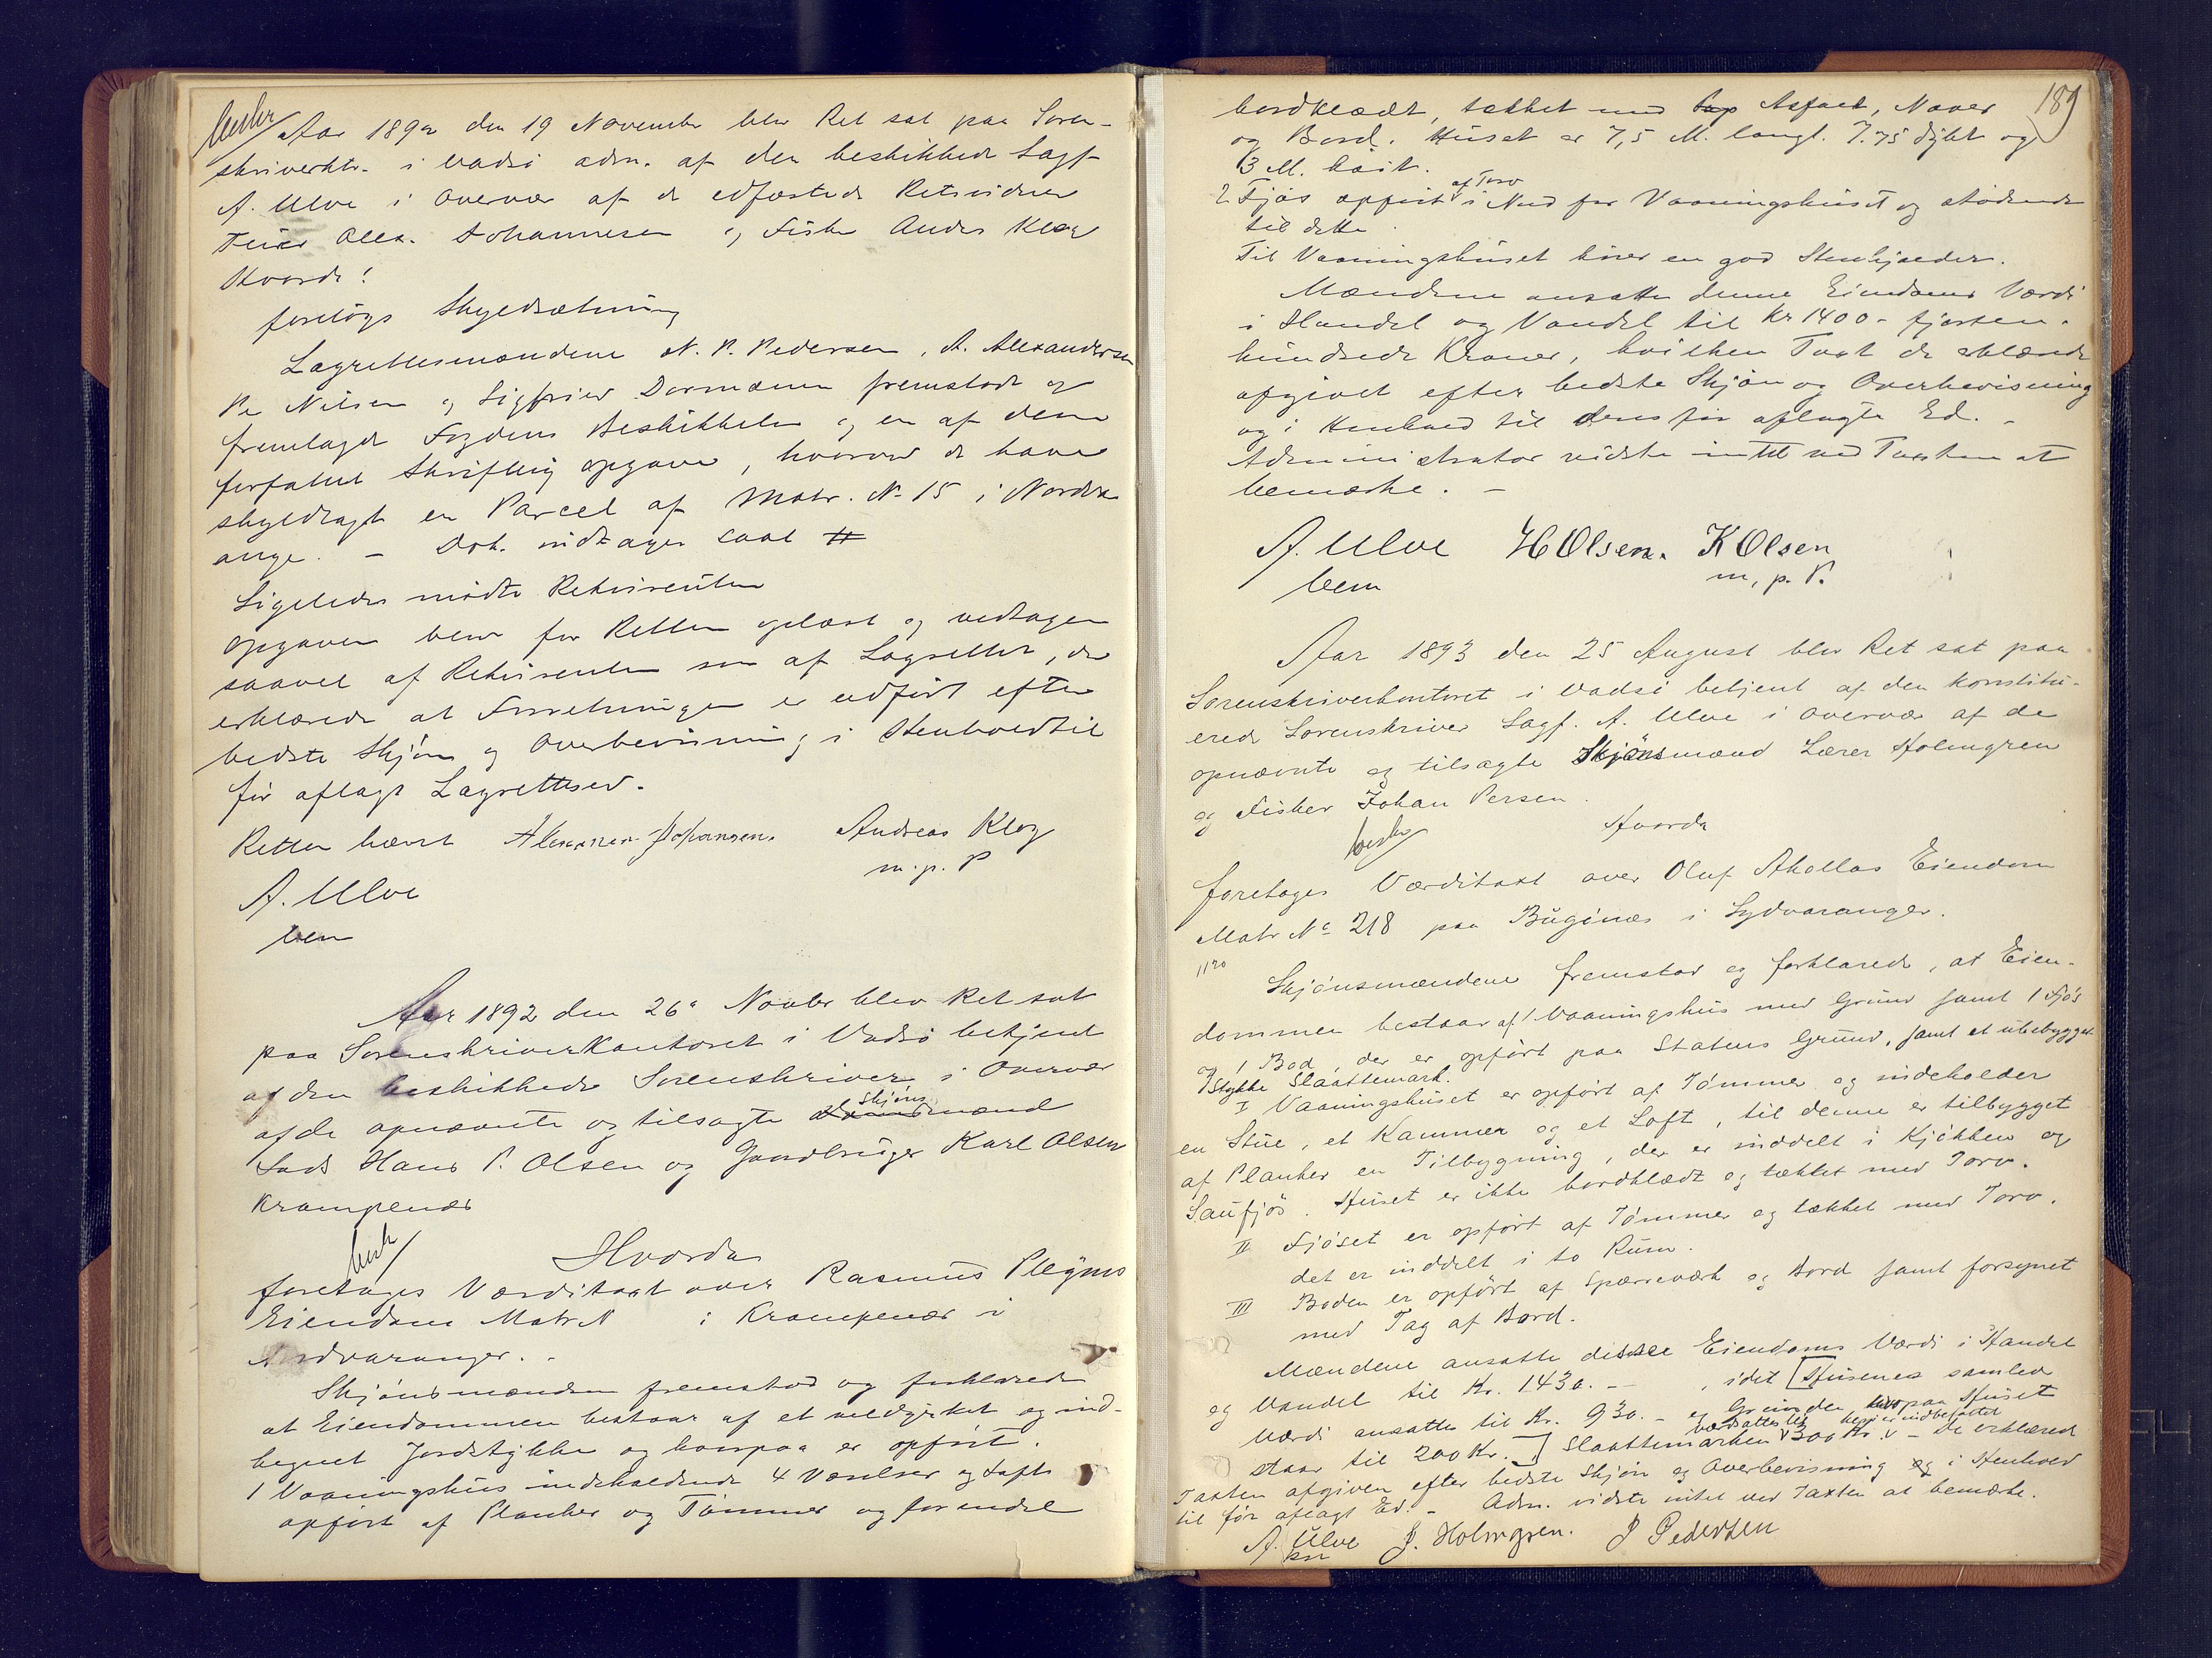 beskr
Aar 1892 den 19 November blev Ret sat paa Soren-
skriverktr. i Vadsö adm. af den beskikkede Sagf.
A. Ulve i Overvær af de edfæstede Retsvidner
Alex. Johannesen og Fisker Andr. Klog
Hvorda!
foretoges Skyldsætning
Lagrettesmændene N. P. Pedersen, A. Alexandersen
Pe Nilsen og Sigfried Dormænen fremstod og
fremlagde Fogdens Beskikkelse og en af dem
forfattet skriftlig opgave, hvorved de have
skyldlagt en Parcel af Matr. No 15 i Nordvar-
anger. - Dok. indtages saal #
Ligeledes mødte Rekvirenten
Opgaven blev for Retten oplæst og vedtagen
saavel af Rekvirenten som af Lagrettet, der
erklærede at Forretningen er udført efter
bedste Skjön og Overbevisning i Henhold til
för aflagt Lagrettesed.
Retten hævet Alexander Johansen. Andreas Klog
m. p. P
A. Ulve
bem
Aar 1892 den 26de Novbr blev Ret sat
paa Sorenskriverkontoret i Vadsö betjent
af den beskikkede Sorenskriver i Overvær
af de opnævnte og tilsagte Skjöns mænd
Hans P. Olsen og Gaardbruger Karl Olsen
Krampenæs
besk
Hvorda
foretoges Værditaxt over Rasmus Plejms
Eiendom Matr N i Krampenæs i
Nordvaranger. -
Skjönsmændene fremstod og forklarede
at Eiendommen bestaar af et veldyrket og ind-
hegnet Jordstykke og hvorpaa er opfört.
1 Vaaningshus indeholdende 4 Værelser og Loft
opfört af Planker og Tømmer og forendel
189
bordklædt, tækket med Asfalt, Næver
og Bord. Huset er 7,5 M. langt. 7.75 dybt og
3 M. höit.
2 Fjös opfört af Torv i Nord for Vaaningshuset og stödende
til dette.
Til Vaaningshuset hörer en god Stenkjælder.
Mændene ansatte denne Eiendoms Værdi
i Handel og Vandel til Kr 1400 - fjorten-
hundrede Kroner, hvilken Taxt de erklærede
afgivet efter bedste Skjön og Overbevisning
og i Henhold til deres för aflagte Ed. -
Administrator vidste intet ved Taxten at
bemærke. -
A. Ulve H Olsen. K Olsen
bem m, p. P.
Aar 1893 den 25 August blev Ret sat paa
Sorenskriverkontoret i Vadsö betjent af den konstitu-
erede Sorenskriver Sagf. A. Ulve i Overvær af de
opnævnte og tilsagte Skjönsmænd Lærer Holmgren
og Fisker Johan Persen.
beskr Hvorda
foretoges Værditaxt over Oluf Aikollas Eiendom
Matr No 218 paa Bugönæs i Sydvaranger.
1120
Skjönsmændene fremstod og forklarede, at Eien-
dommen bestaar af 1 Vaaningshus med Grund samt 1 Fjös
og 1 Bod, der er opfört paa Statens Grund, samt et ubebygget
Stykke Slaattemark.
I Vaaningshuset er opfört af Tömmer og indeholder
en Stue, et Kammer og et Loft, til denne er tilbygget
af Planker en Tilbygning, der er inddelt i Kjökken og
Saufjös. Huset er ikke bordklædt og tækket med Torv.
II Fjöset er opfört af Tömmer og tækket med Torv.
det er inddelt i to Rum.
III Boden er opfört af Spærreværk og Bord samt forsynet
med Tag af Bord.
Mændene ansatte disse Eiendoms Værdi i Handel
og Vandel til Kr. 1430. - , idet [Husenes samlede
Værdi ansattes til Kr. 930. - og Grunden hvorpaa Huset
staar til 200 Kr.] Slaattemarken værdsattes til 300 Kr. heri er indbefattet - De erklærede
Taxten afgiven efter bedste Skjön og Overbevisning og i Henhold
til för aflagt Ed. - Adm. vidste intet ved Taxten at bemærke.
A. Ulve J. Holmgren. J Pedersen
kst